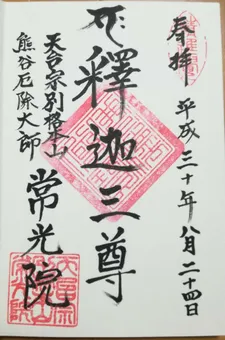 奉拝
平成三十年八月二十四日
釋迦三尊
天台宗別格本山
熊谷厄除大師
常光院